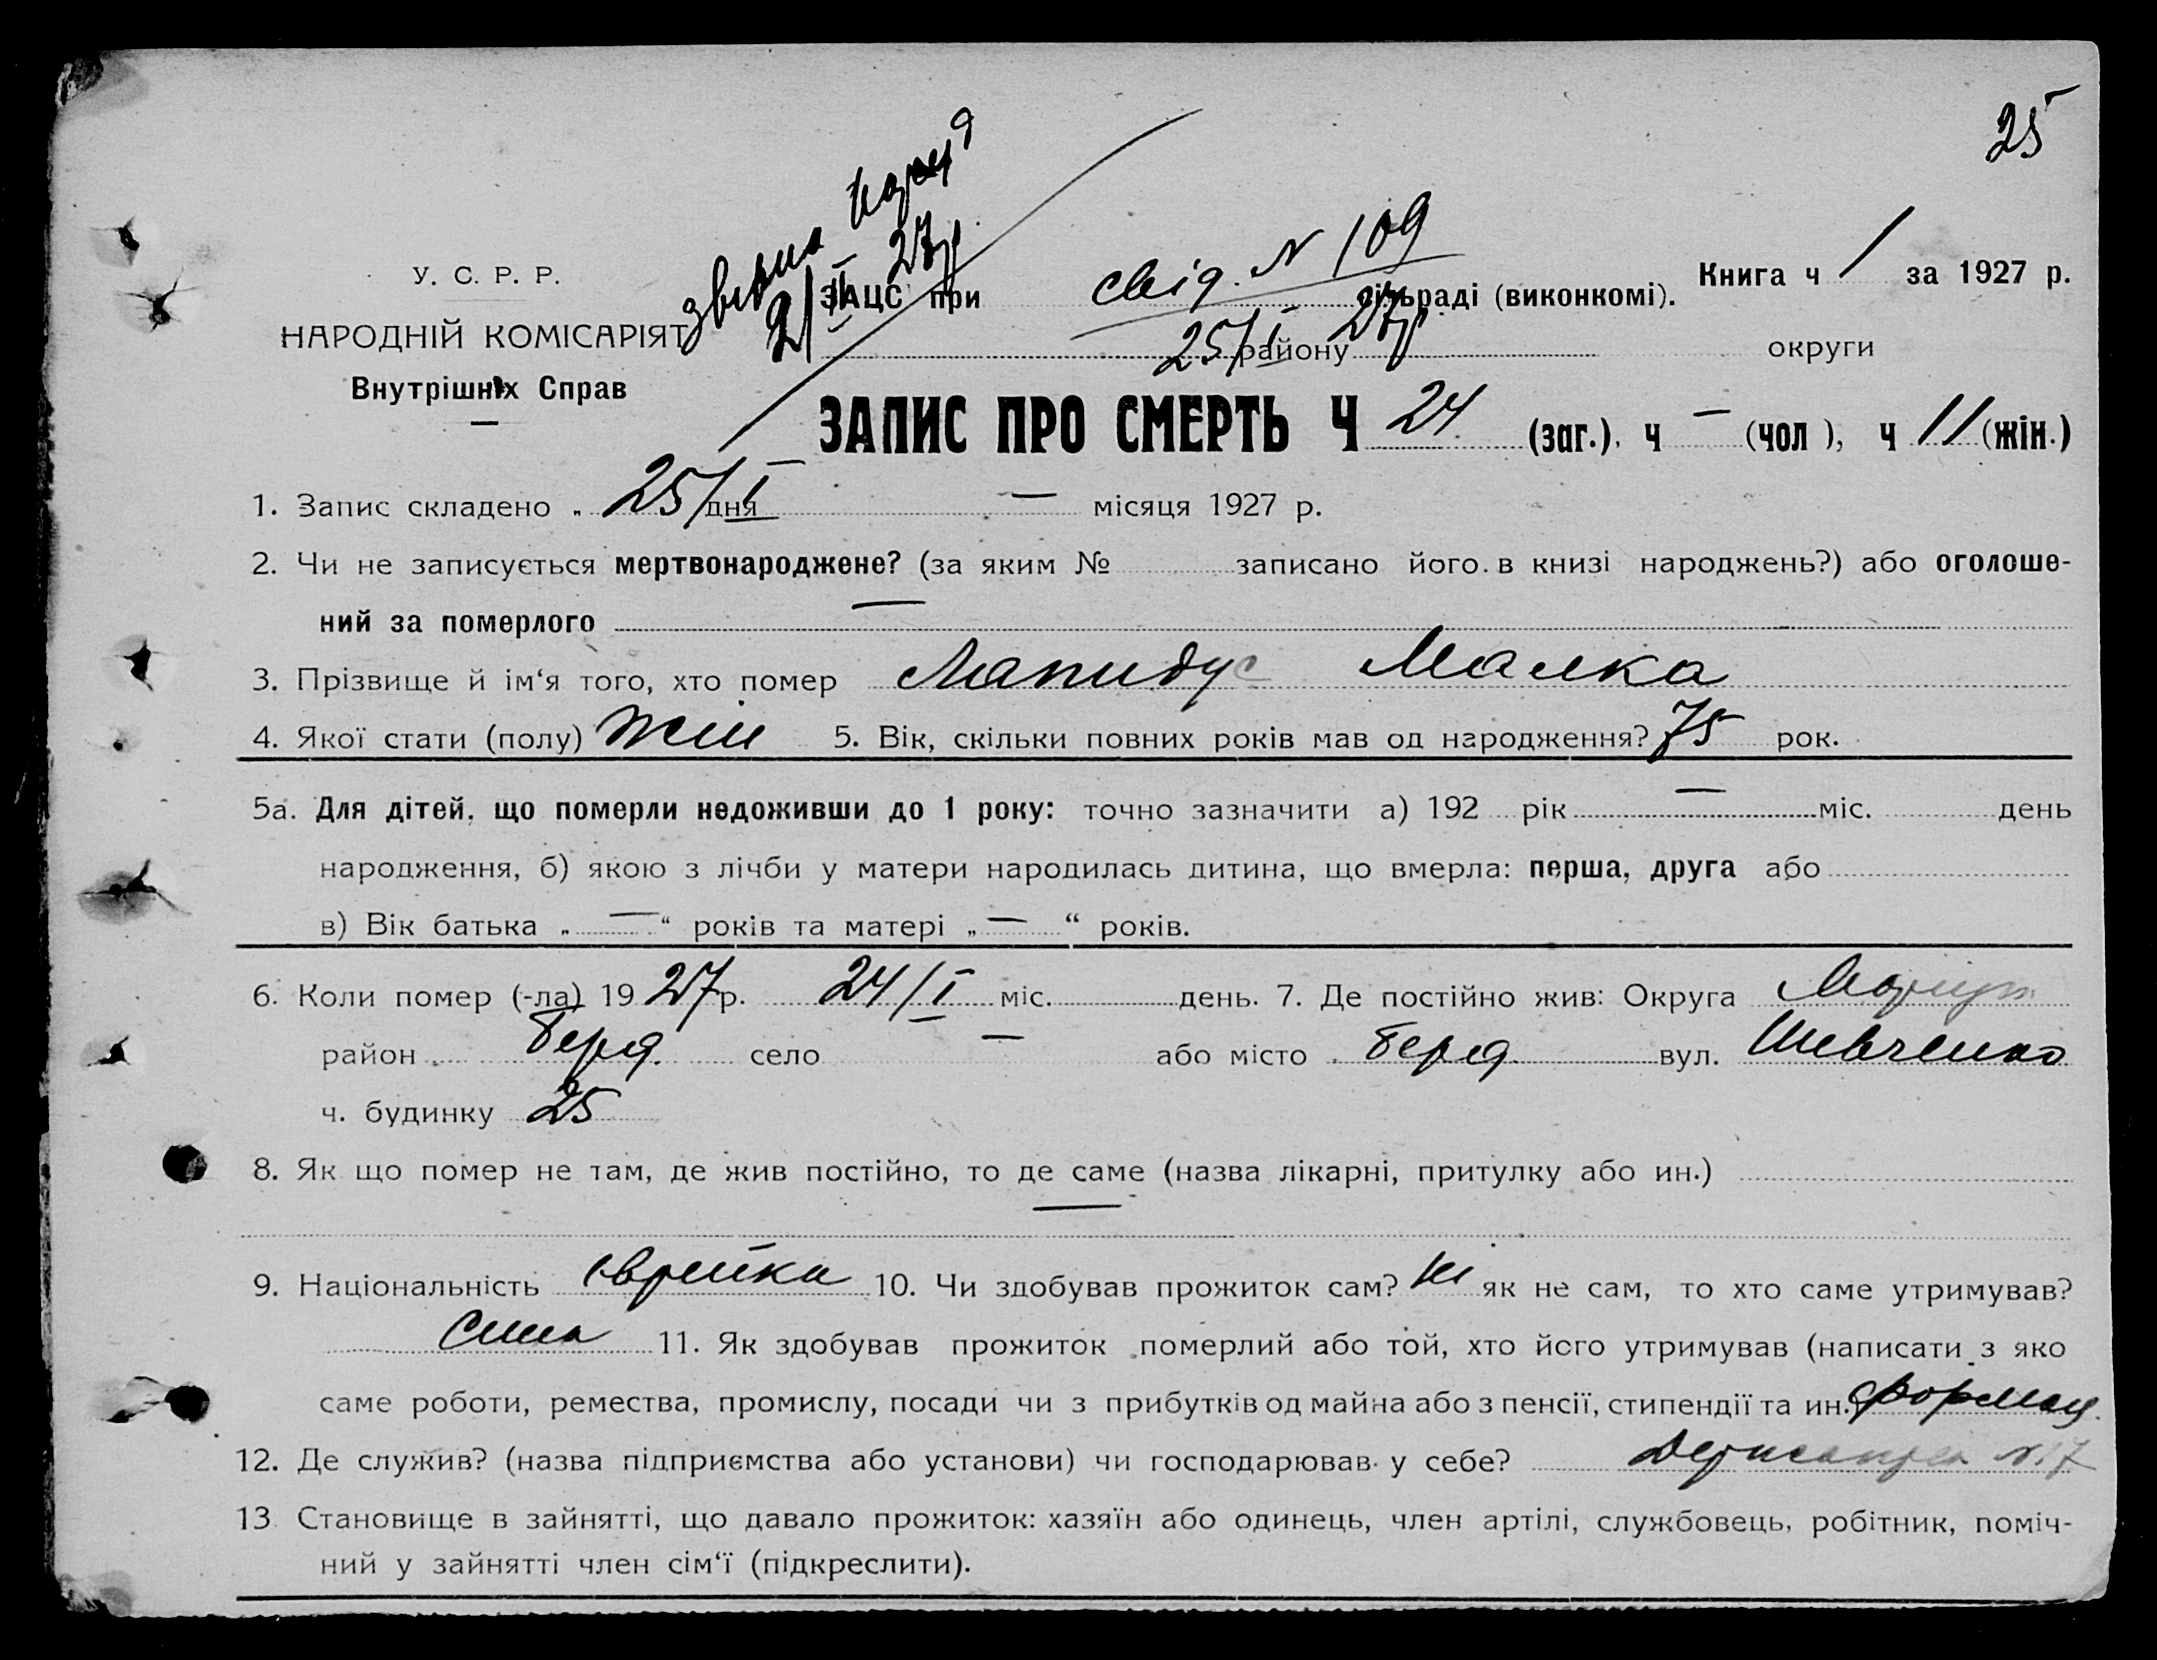 25
У. С. Р. Р.
НАРОДНІЙ КОМІСАРІЯТ
Внутрішніх Справ
звірив
21/II 27р.
свід. N 109
25/I 27р.
ЗАЦС при сільраді (виконкомі). Книга ч 1 за 1927 р.
району округи
ЗАПИС ПРО СМЕРТЬ Ч 24 (заг.). ч — (чол ), ч 11 (жін.)
1. Запис складено „ 25/I дня — місяця 1927 р.
2. Чи не записується мертвонароджене? (за яким № записано його в книзі народжень?) або оголоше-
ний за померлого —
3. Прізвище й ім‘я того, хто помер Лапидус Малка
4. Якої стати (полу) жін 5. Вік, скільки повних років мав од народження? 75 рок.
5а. Для дітей, що померли недоживши до 1 року: точно зазначити а) 192 рік — міс. день
народження, б) якою з лічби у матери народилась дитина, що вмерла: перша, друга або
в) Вік батька „ — “ років та матері „ — “ років.
6. Коли помер (-ла) 1927р. 24/I міс. день. 7. Де постійно жив: Округа Маріуп
район Берд. село — або місто Берд. вул. Шевченко
ч. будинку 25
8. Як що помер не там, де жив постійно, то де саме (назва лікарні, притулку або ин.)
—
9. Національність єврейка 10. Чи здобував прожиток сам? Ні як не сам, то хто саме утримував?
Сина 11. Як здобував прожиток померлий або той, хто його утримував (написати з яко
саме роботи, ремества, промислу, посади чи з прибутків од майна або з пенсії, стипендії та ин.
12. Де служив? (назва підприємства або установи) чи господарював у себе? N17
13 Становище в зайнятті, що давало прожиток: хазяїн або одинець, член артілі, службовець, робітник, поміч-
ний у зайнятті член сім‘ї (підкреслити).